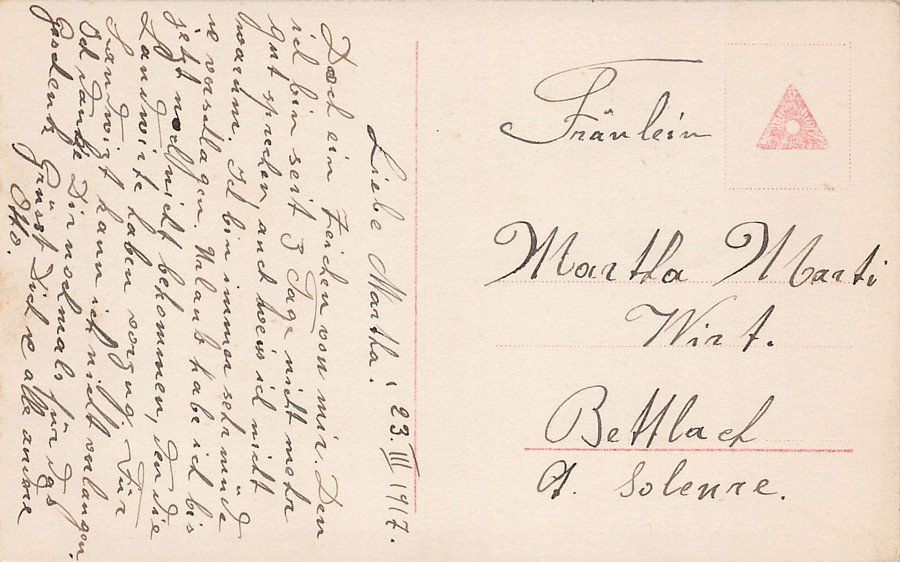 23. III 1917.
Liebe Martha!
Doch ein Zeichen von mir. Den
ich bin seit 3 Tage nicht mehr
gut sprechen, auch weis ich nicht
warum. Ich bin immer sehr müde
u verschlagen. Urlaub habe ich bis
jetzt noch nicht bekommen, den die
Landwirte haben vorzug, Für
Landwirt kann ich nicht verlangen.
Ich danke Dir nochmals für das
Geschenk Grüsst Dich u alle andere
Otto.
Fräulein
Martha Marti
Wirt.
Bettlach
Ct. Soleure.